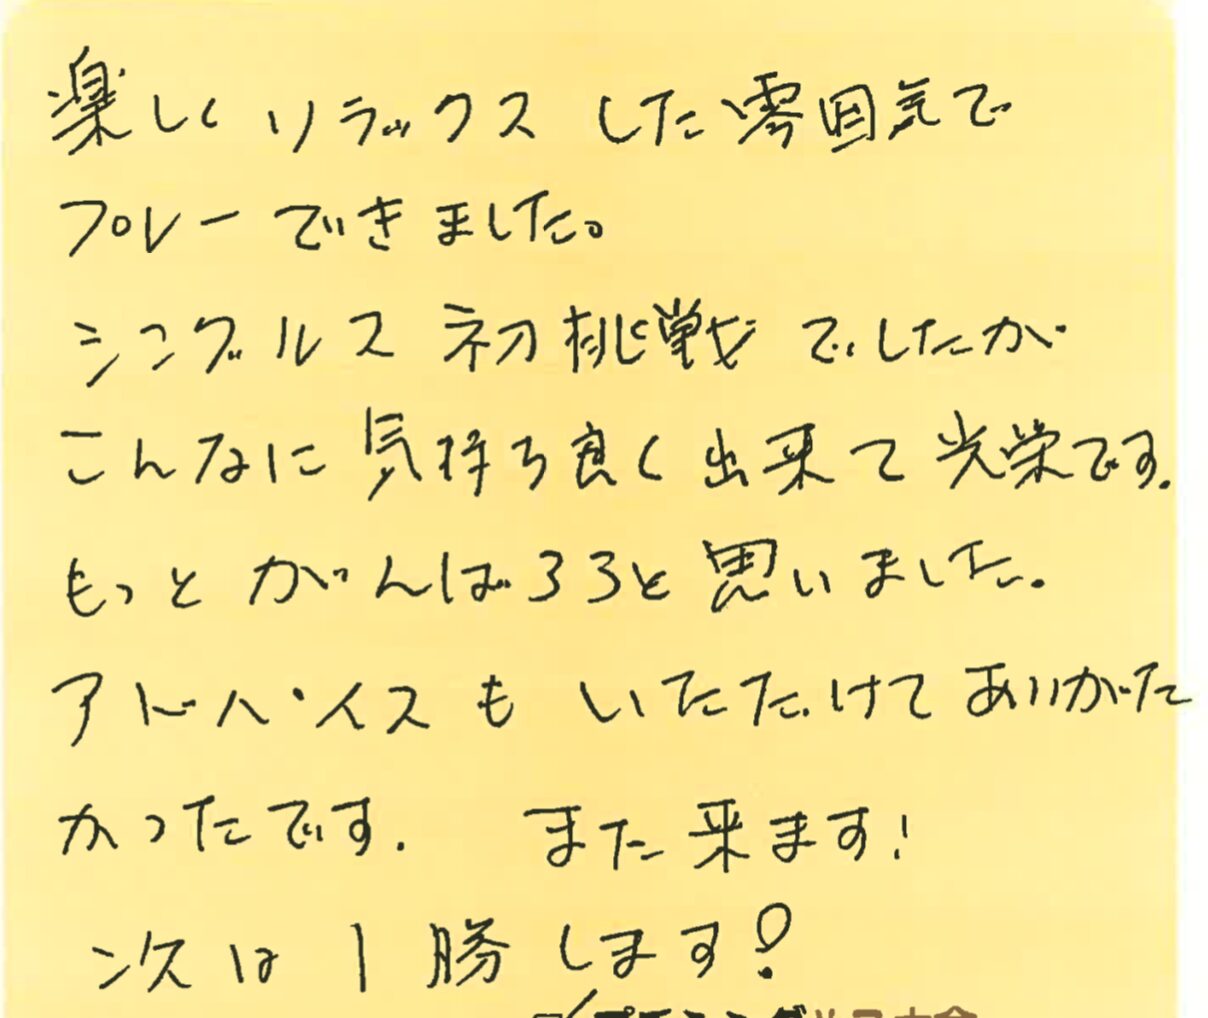 楽しくリラックスした雰囲気で
プレーできました。
シングルス初挑戦でしたが
こんなに気持ち良く出来て光栄です.
もっとがんばろうと思いました.
アドバイスもいただけてありがた
かったです. また来ます!
次は1勝します!